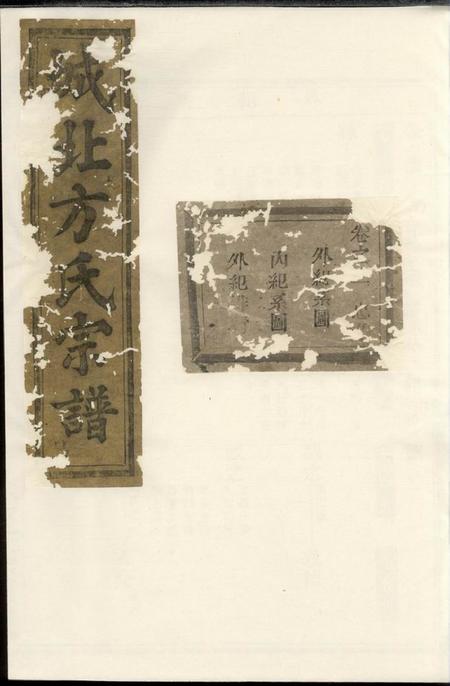 城北方氏宗譜
卷之一
外紀系圖
內紀系圖
外紀